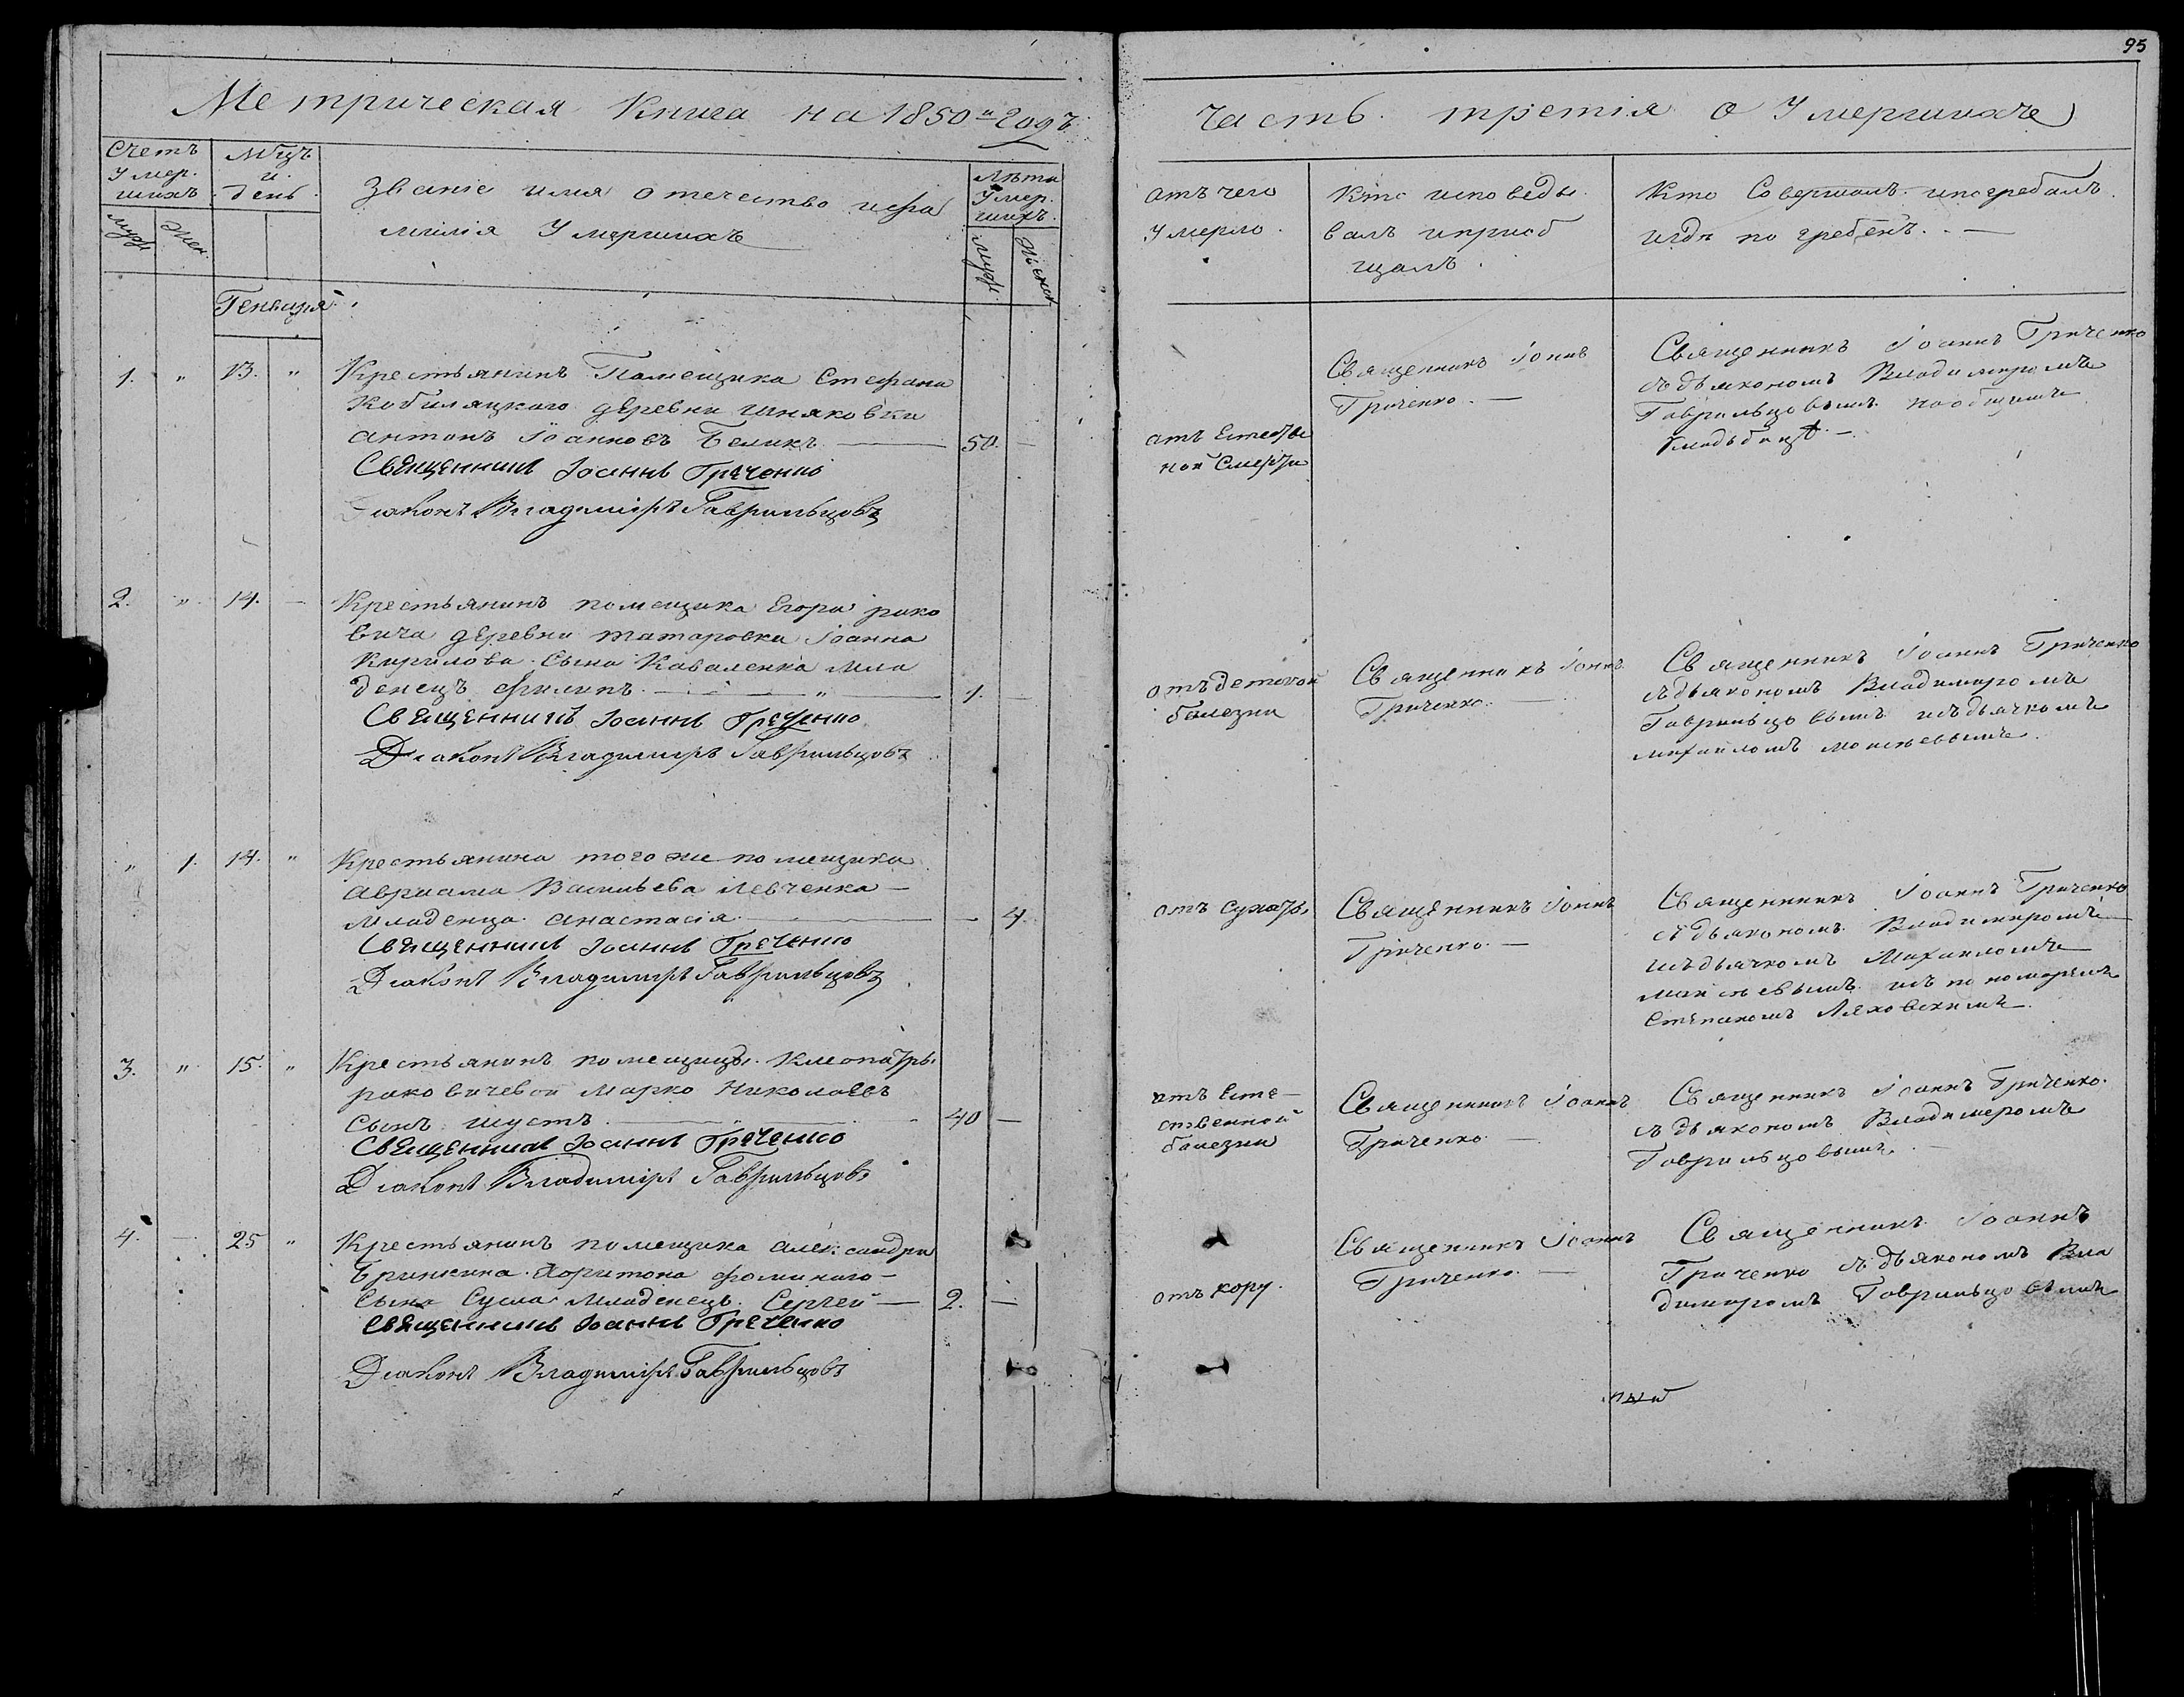 95
Метрическая Книга на 1850й годъ
Часть третія о Умершихъ
Счетъ Умер. шихъ
муж. Жен.
Мцъ и день
Званіе имя отечество и фа
милія Умершихъ
Лѣта Умер. шихъ
муж. Женс.
атъ чего
Умерло.
Кто исповеды
валъ и приоб
щалъ.
Кто Совершалъ погребалъ
и гдѣ погребенъ.
Генваря
1. " 13. "
Крестьянинъ Помещика Стефана
Кобиляцкаго деревни Шняковки
антонъ Іоанновъ Беликъ — 50. —
Священникъ Іоаннъ Греченко
Діаконъ Владиміръ Гаврильцовъ
атъ Естестве
ной Смерти
Священникъ Іоаннъ
Греченко. —
Священникъ Іоаннъ Греченко
съ дьякономъ Владимиромъ
Гаврильцовымъ на общемъ
кладбищѣ. —
2. " 14. —
Крестьянинъ помещика Егора рако
вича деревни татаровки Іоанна
Кирилова сына Коваленка мла
денецъ филипъ — " — 1. —
Священникъ Іоаннъ Греченко
Діаконъ Владиміръ Гаврильцовъ
отъ детской
болезни
Священникъ Іоаннъ
Греченко. —
Священникъ Іоаннъ Греченко
съ дьякономъ Владимиромъ
Гаврильцовымъ и съ дьячкомъ
михаиломъ моисеевымъ.
" 1. 14. "
Крестьянина того же помещика
авраама Васильева Левченка —
младенца анастасія — — 4.
Священникъ Іоаннъ Греченко
Діаконъ Владиміръ Гаврильцовъ
отъ сухоты
Священникъ Іоаннъ
Греченко. —
Священникъ Іоаннъ Греченко
съ дьякономъ Владимиромъ —
и съ дьячкомъ Михаиломъ
моисеевымъ и съ пономаремъ
Степаномъ Ляховскимъ.
3. " 15. "
Крестьянинъ помещицы Клеопатры
раковичевой Марко Николаевъ
Сынъ шустъ — 40 —
Священникъ Іоаннъ Греченко
Діаконъ Владиміръ Гаврильцовъ
атъ Есте-
ственной
болезни
Священникъ Іоаннъ
Греченко —
Священникъ Іоаннъ Греченко.
съ дьякономъ Владимеромъ
Гаврильцовымъ. —
4. — 25 "
Крестьянинъ помещика александра
Бринкина Харитона фоминаго —
Сына Сусла младенецъ Сергей — 2. —
Священникъ Іоаннъ Греченко
Діаконъ Владиміръ Гаврильцовъ
отъ кору.
Священникъ Іоаннъ
Греченко. —
Священникъ Іоаннъ
Греченко съ дьякономъ Вла
димиромъ Гаврильцовымъ